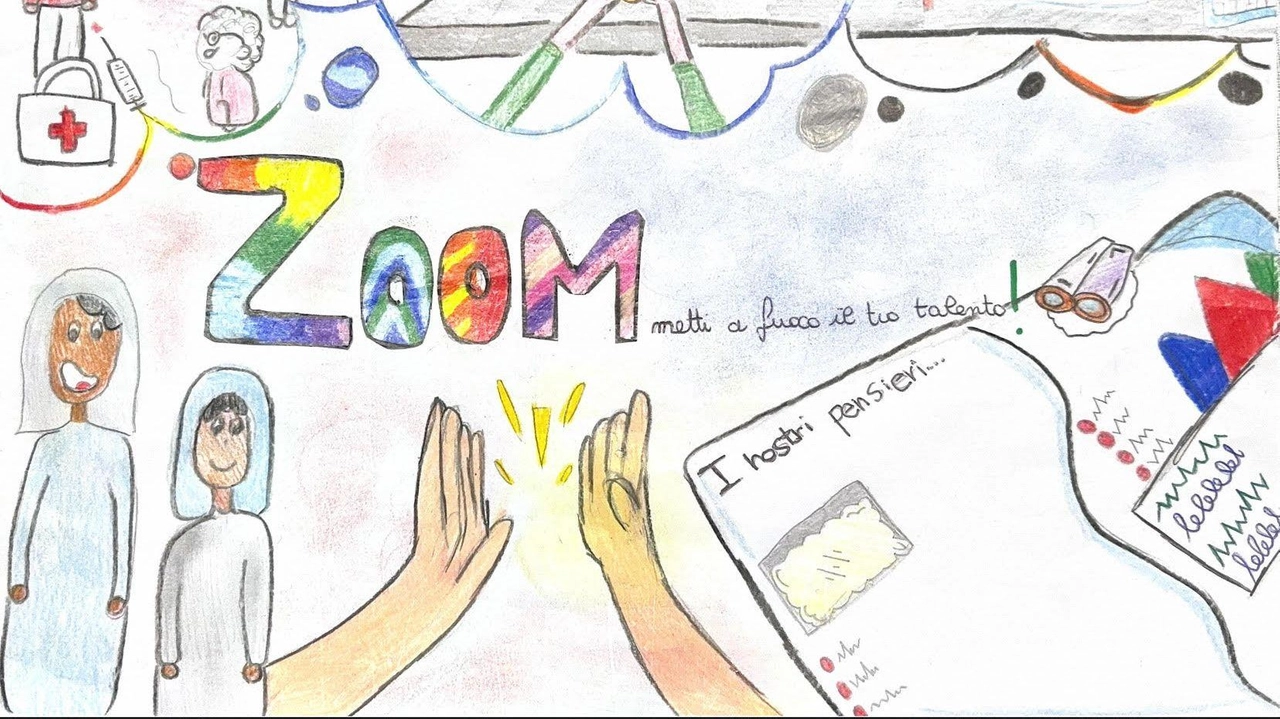 ZOOM
metti a fuoco il tuo talento!
I nostri pensieri...